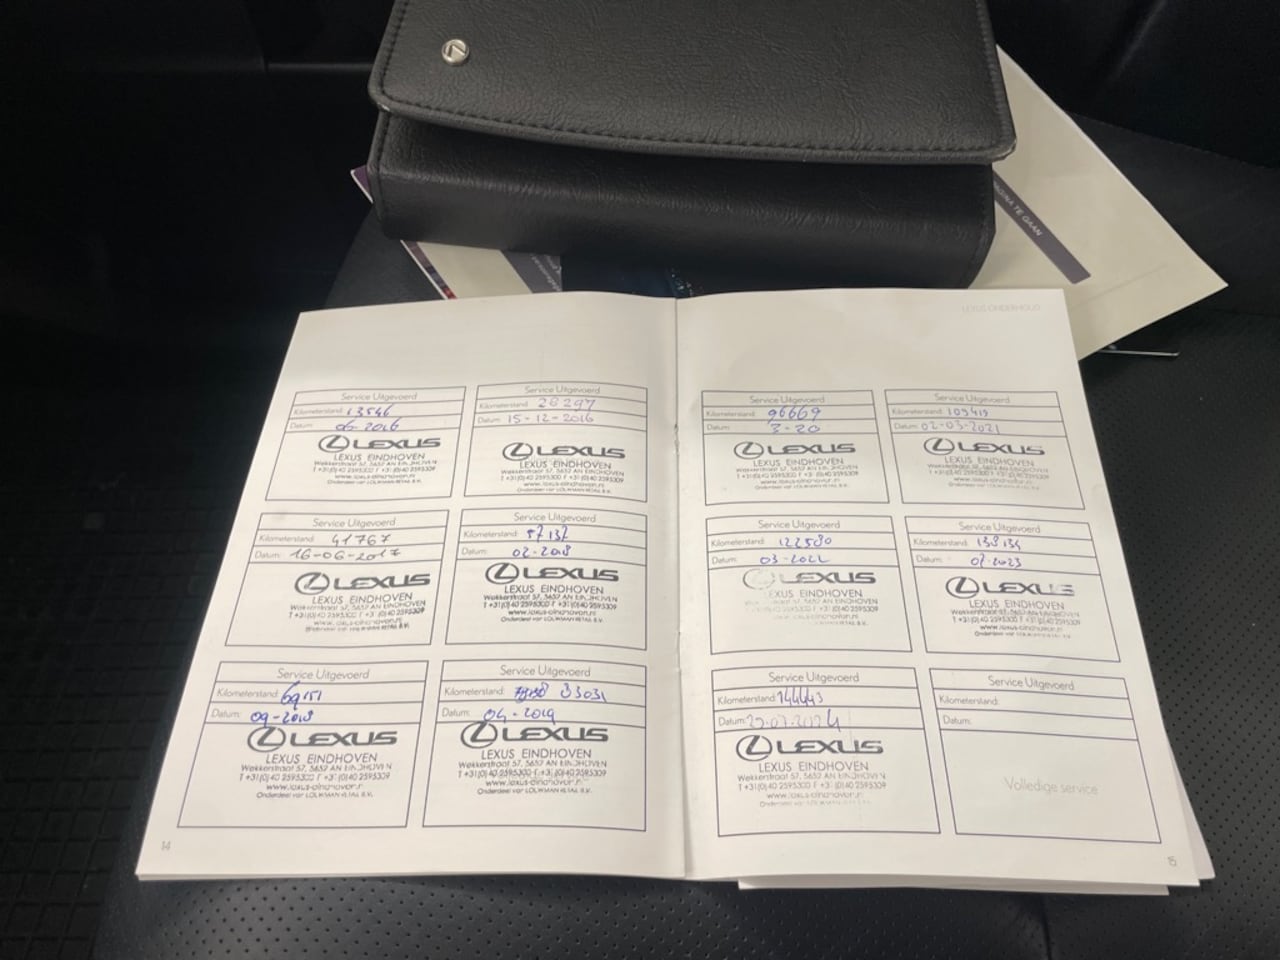 PAGINA TE GAAN
LEXUS ONDERHOUD
Service Uitgevoerd
Kilometerstand: 13546
Datum: 06-2016
LEXUS
LEXUS EINDHOVEN
Wekkerstraat 57, 5652 AN EINDHOVEN
T +31(0)40 2595300 F +31(0)40 2595309
www.lexus-eindhoven.nl
Onderdeel van LOUWMAN RETAIL B.V.
Service Uitgevoerd
Kilometerstand: 28297
Datum: 15-12-2016
LEXUS
LEXUS EINDHOVEN
Wekkerstraat 57, 5652 AN EINDHOVEN
T +31(0)40 2595300 F +31(0)40 2595309
www.lexus-eindhoven.nl
Onderdeel van LOUWMAN RETAIL B.V.
Service Uitgevoerd
Kilometerstand: 41767
Datum: 16-06-2017
LEXUS
LEXUS EINDHOVEN
Wekkerstraat 57, 5652 AN EINDHOVEN
T +31(0)40 2595300 F +31(0)40 2595309
www.lexus-eindhoven.nl
Onderdeel van LOUWMAN RETAIL B.V.
Service Uitgevoerd
Kilometerstand: 57137
Datum: 02-2018
LEXUS
LEXUS EINDHOVEN
Wekkerstraat 57, 5652 AN EINDHOVEN
T +31(0)40 2595300 F +31(0)40 2595309
www.lexus-eindhoven.nl
Onderdeel van LOUWMAN RETAIL B.V.
Service Uitgevoerd
Kilometerstand: 69151
Datum: 09-2018
LEXUS
LEXUS EINDHOVEN
Wekkerstraat 57, 5652 AN EINDHOVEN
T +31(0)40 2595300 F +31(0)40 2595309
www.lexus-eindhoven.nl
Onderdeel van LOUWMAN RETAIL B.V.
Service Uitgevoerd
Kilometerstand: 83031
Datum: 04-2019
LEXUS
LEXUS EINDHOVEN
Wekkerstraat 57, 5652 AN EINDHOVEN
T +31(0)40 2595300 F +31(0)40 2595309
www.lexus-eindhoven.nl
Onderdeel van LOUWMAN RETAIL B.V.
14
Service Uitgevoerd
Kilometerstand: 96669
Datum: 3-20
LEXUS
LEXUS EINDHOVEN
Wekkerstraat 57, 5652 AN EINDHOVEN
T +31(0)40 2595300 F +31(0)40 2595309
www.lexus-eindhoven.nl
Onderdeel van LOUWMAN RETAIL B.V.
Service Uitgevoerd
Kilometerstand: 109419
Datum: 02-03-2021
LEXUS
LEXUS EINDHOVEN
Wekkerstraat 57, 5652 AN EINDHOVEN
T +31(0)40 2595300 F +31(0)40 2595309
www.lexus-eindhoven.nl
Onderdeel van LOUWMAN RETAIL B.V.
Service Uitgevoerd
Kilometerstand: 122580
Datum: 03-2022
LEXUS
LEXUS EINDHOVEN
Wekkerstraat 57, 5652 AN EINDHOVEN
T +31(0)40 2595300 F +31(0)40 2595309
www.lexus-eindhoven.nl
Service Uitgevoerd
Kilometerstand: 138134
Datum: 07-2023
LEXUS
LEXUS EINDHOVEN
Wekkerstraat 57, 5652 AN EINDHOVEN
T +31(0)40 2595300 F +31(0)40 2595309
www.lexus-eindhoven.nl
Onderdeel van LOUWMAN RETAIL B.V.
Service Uitgevoerd
Kilometerstand: 144443
Datum:
LEXUS
LEXUS EINDHOVEN
Wekkerstraat 57, 5652 AN EINDHOVEN
T +31(0)40 2595300 F +31(0)40 2595309
www.lexus-eindhoven.nl
Onderdeel van LOUWMAN RETAIL B.V.
Service Uitgevoerd
Kilometerstand:
Datum:
Volledige service
15